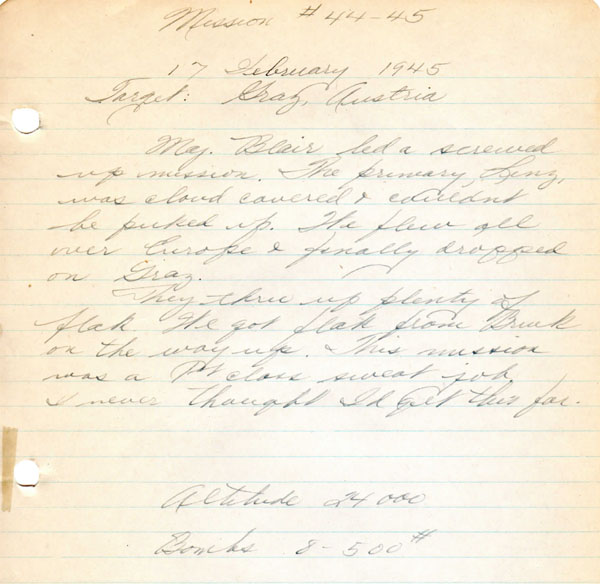 Mission # 44-45
17 February 1945
Target: Graz, Austria
Maj. Blair led a screwed
up mission. The primary, Linz,
was cloud covered & couldnt
be picked up. We flew all
over Europe & finally dropped
on Graz.
They thru up plenty of
flak. We got flak from Bruck
on the way up. This mission
was a 1st class sweat job
I never thought I'd get this far.
Altitude 24000
Bombs 8-500#